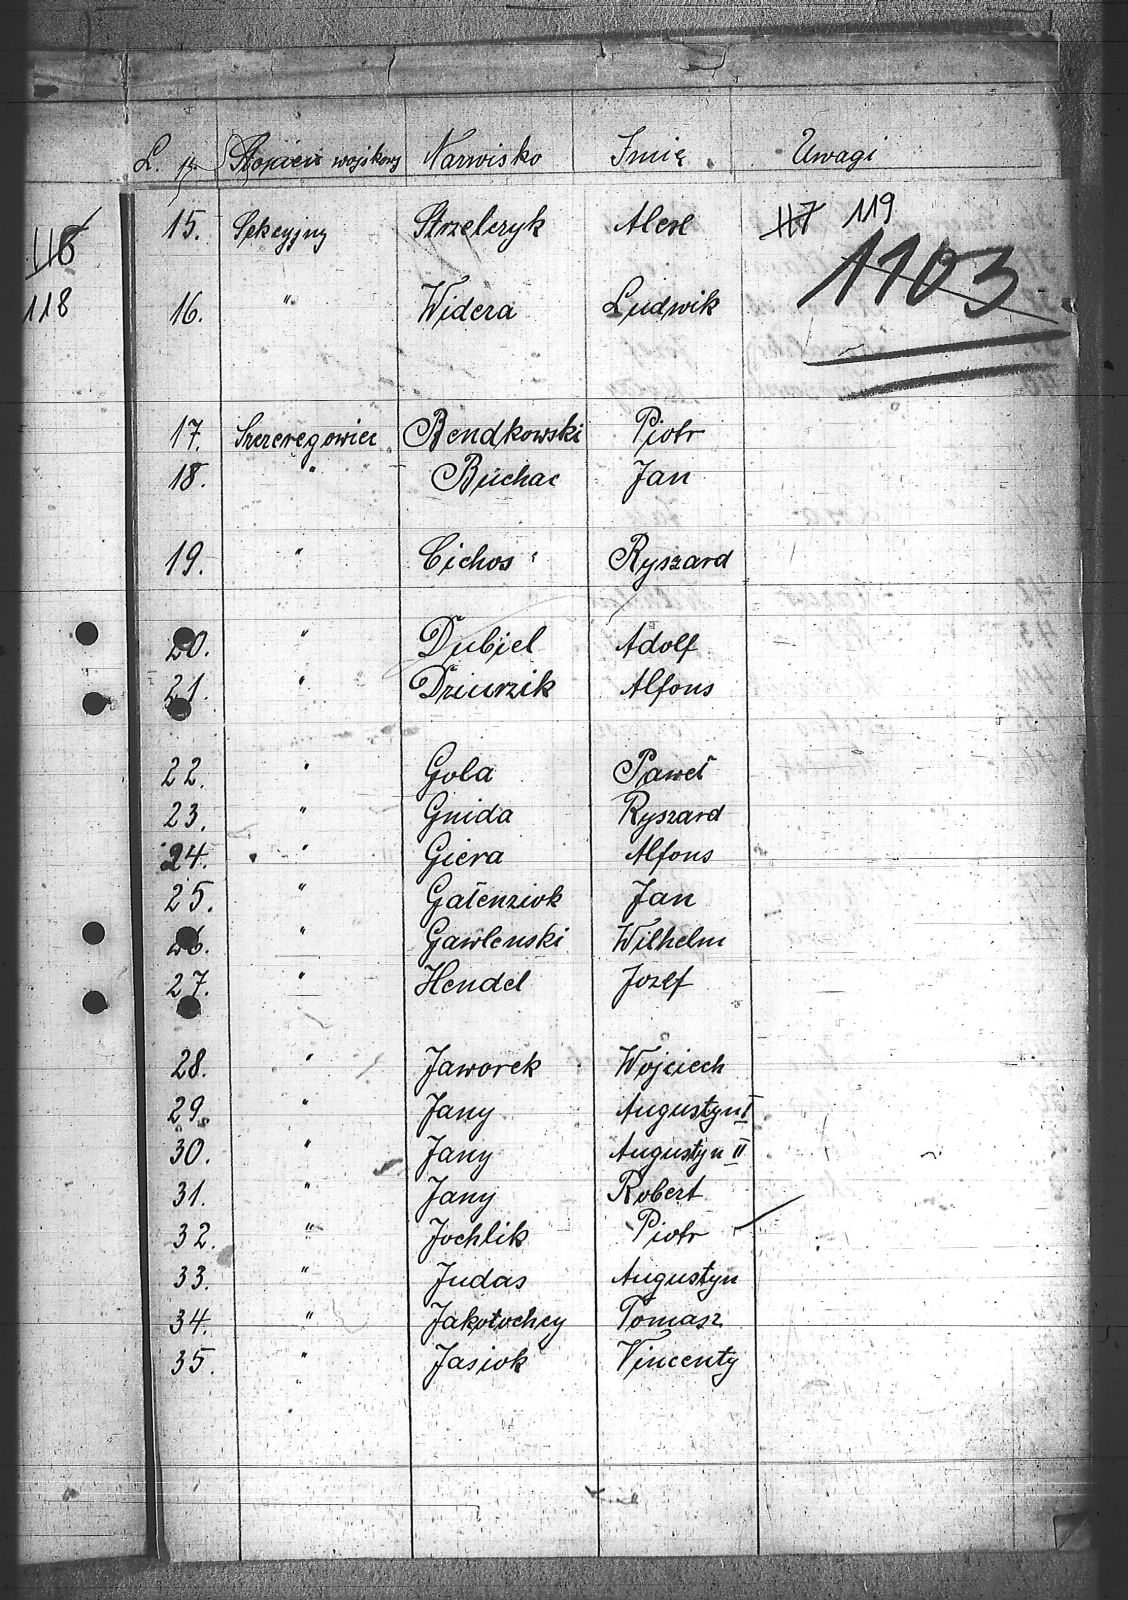 L. p. Stopień wojskowy Nazwisko Imię Uwagi
118 117 119
15. Sekcyjny Strzelczyk Alex
1103
118
16. " Widera Ludwik
17. Szeregowiec Bendkowski Piotr
18. " Buchac Jan
19. " Cichos Ryszard
20. " Dubiel Adolf
21. " Dziurzik Alfons
22. " Gola Paweł
23. " Gnida Ryszard
24. " Giera Alfons
25. " Gałenziok Jan
26. " Gawlenski Wilhelm
27. " Hendel Jozef
28. " Jaworek Wojciech
29. " Jany Augustyn I
30. " Jany Augustyn II
31. " Jany Robert
32. " Jochlik Piotr
33. " Judas Augustyn
34. " Jakotochcy Tomasz
35. " Jasiok Vincenty